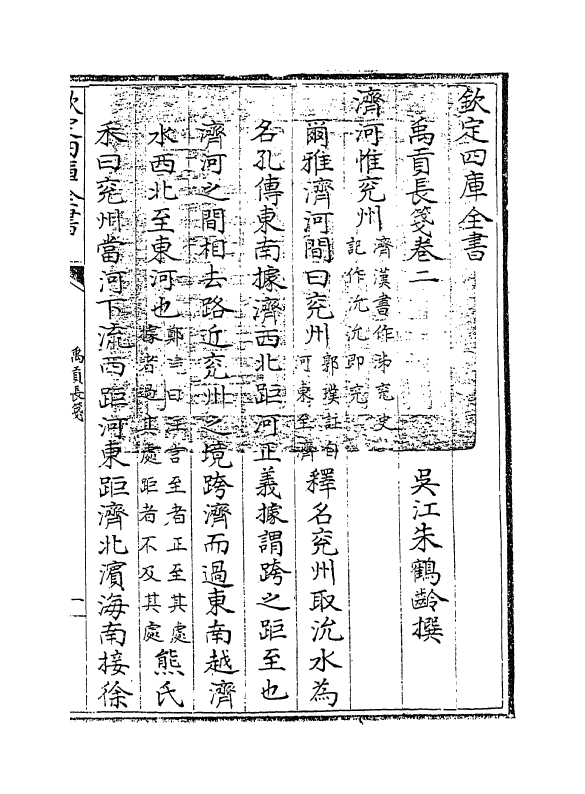 欽定四庫全書
禹貢長箋卷二
吳江朱鶴齡撰
濟河惟兖州濟漢書作沛兖史記作沇沇即兖
爾雅濟河間曰兖州郭璞註自河東至濟釋名兖州取沇水為
名孔傳東南據濟西北距河正義據謂跨之距至也
濟河之間相去路近兖州之境跨濟而過東南越濟
水西北至東河也鄭氏曰言至者正至其處據者過其處距者不及其處熊氏
禾曰兖州當河下流西距河東距濟北濱海南接徐
欽定四庫全書
禹貢長箋